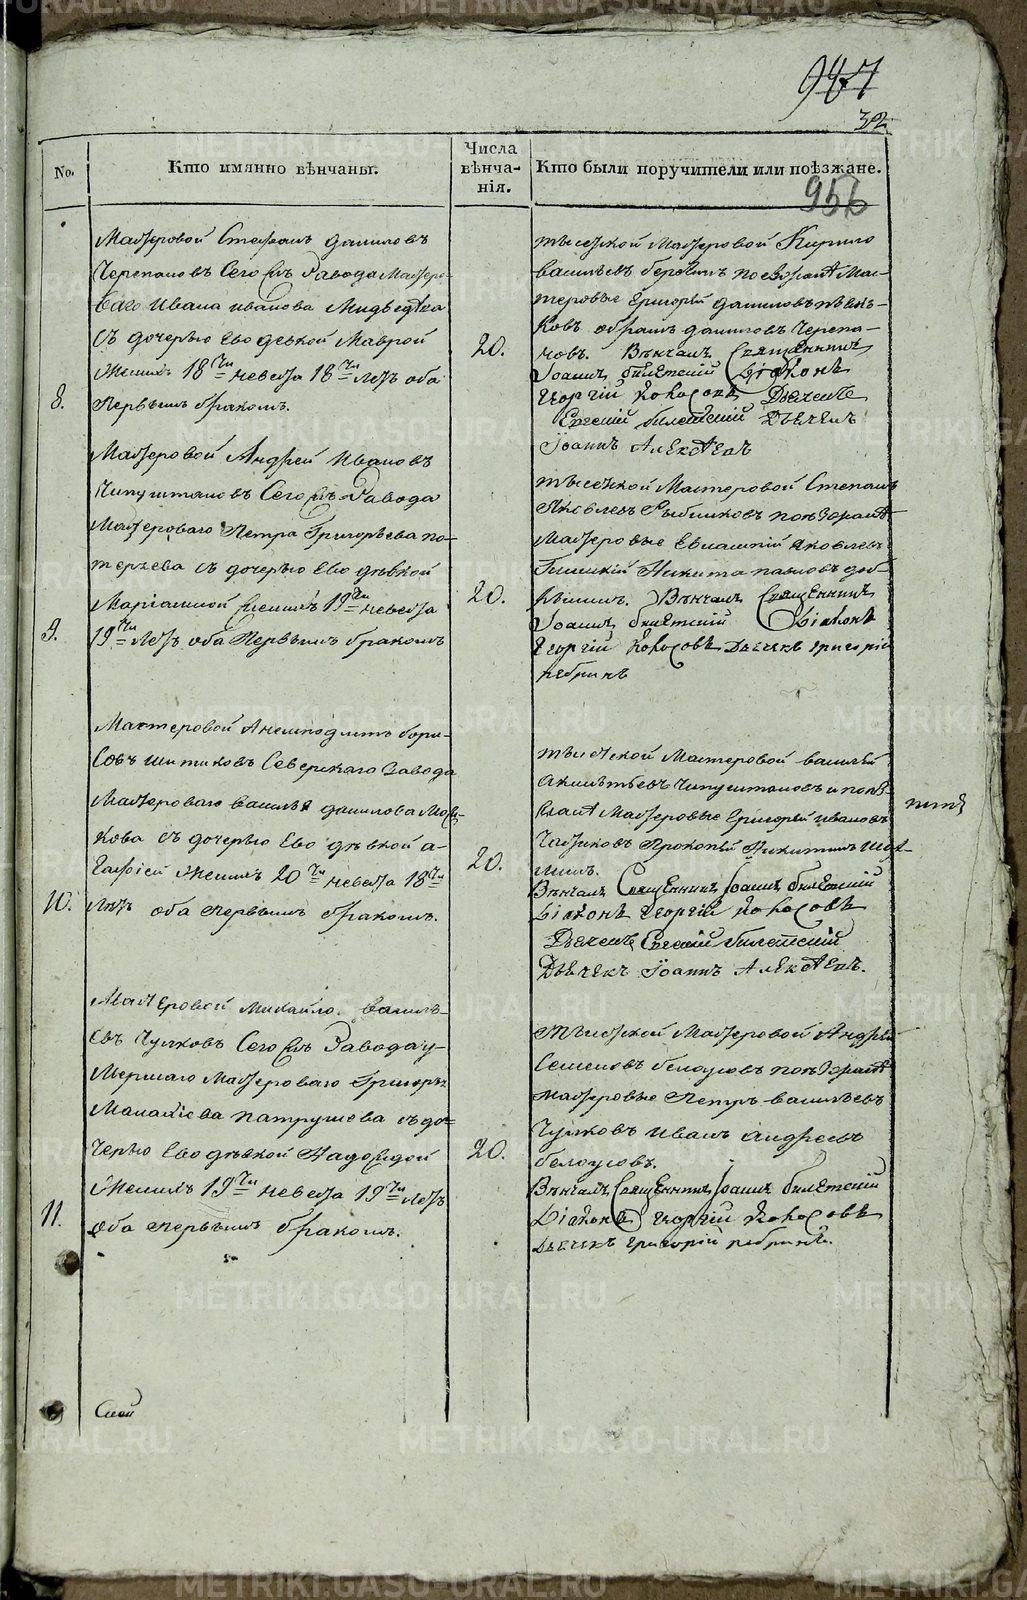 947
32
No.
Кто имянно вѣнчаны.
Числа
вѣнча-
нія.
Кто были поручители или поѣзжане.
956
8.
Мастеровой Стефанъ Даниловъ
Черепановъ Сего Жъ Завода Мастеро-
ваго Ивана Иванова Мидведева
Съ дочерью Ево девкой Маврой
Жених 18 ти невеста 18 ти летъ оба
Первымъ бракомъ.
20.
тысецкой Мастеровой Кирило
васильевъ поезжане Мас-
теровые Григорей Даниловъ
даниловъ Черепа-
новъ. Вѣнчалъ Священникъ
Іоаннъ билетскій Діаконъ
Георгій Кокосовъ Дьячекъ
Евгеній билетскій Дьячекъ
Іоаннъ Алексеевъ
9.
Мастеровой Андрей Ивановъ
Чипуштановъ Сего Жъ Завода
Мастероваго Петра Григорьева по-
теряева съ дочерью Ево девкой
Маріамной Женихъ 19 ти невеста
19 ти Летъ оба Первымъ бракомъ
20.
тысецкой Мастеровой Степанъ
Яковлевъ Рыбниковъ поезжане
Мастеровые Евлампій Яковлевъ
Никита павловъ
Вѣнчалъ Священникъ
Іоаннъ билетскій Діаконъ
Георгій Кокосовъ Дьячекъ григорій
ребринъ
10.
Мастеровой Анемподистъ бори-
совъ шитиковъ Северскаго Завода
Мастероваго василья данилова
кова съ дочерью Ево девкой а-
гафіей Женихъ 20 ти невеста 18 ти
Летъ оба первымъ бракомъ.
20.
тысецкой Мастеровой василей
Чипуштановъ и поез-
жане Мастеровые Григорей ивановъ
Прокопей Никитинъ
Вѣнчалъ Священникъ Іоаннъ билетскій
Діаконъ Георгій Кокосовъ
Дьячекъ Евгеній билетскій
Дьячекъ Іоаннъ Алексеевъ.
11.
Мастеровой Михайло василь-
евъ Чулковъ Сего Жъ Завода у-
мершаго Мастероваго Григорья
Маланіева патрушева съ до-
черью Ево девкой Надеждой
Женихъ 19 ти невеста 19 ти летъ
оба первымъ бракомъ.
20.
тысецкой Мастеровой Андрей
Семеновъ белоусовъ поезжане
мастеровые Петръ васильевъ
Чулковъ иванъ андреевъ
белоусовъ.
Вѣнчалъ Священникъ Іоаннъ билетскій
Діаконъ Георгій Кокосовъ
Дьячекъ григорій ребринъ.
METRIKI.GASO-URAL.RU